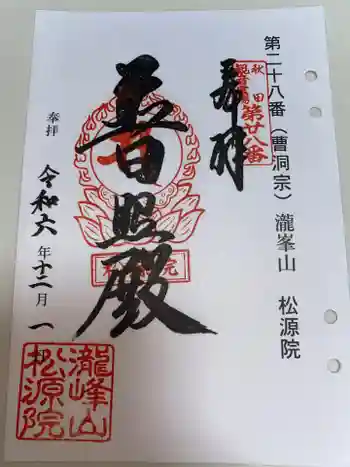 第二十八番（曹洞宗）瀧峯山　松源院
奉拝
秋田
観音霊場
第廿八番
普照殿
松源院
奉拝
令和六年十二月一日
瀧峰山
松源院